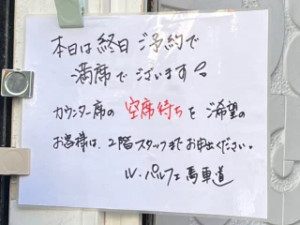 本日は終日ご予約で
満席でございます!
カウンター席の空席待ちをご希望の
お客様は、2階スタッフまでお申出ください。
ル・パルフェ馬車道